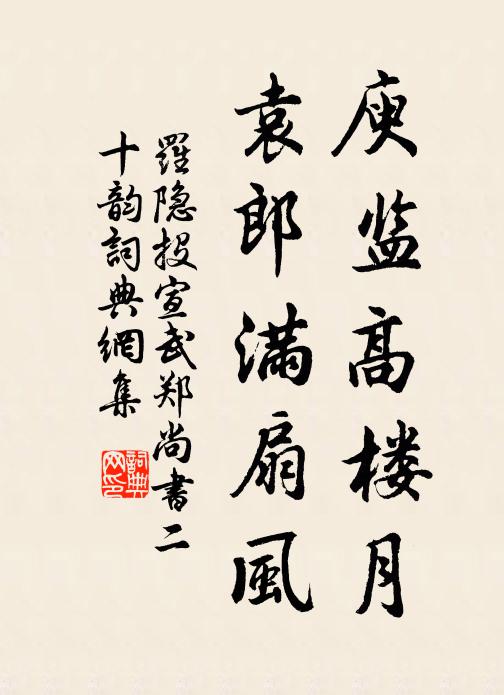 庾监高楼月
袁郎满扇風
羅隐投宣武郑尚書二
十韵詞典網集
詞典
网印